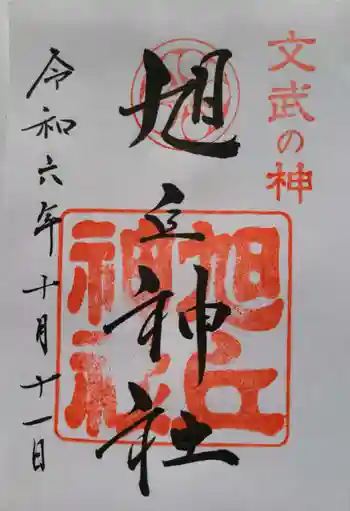 文武の神
旭丘神社
旭丘神社
令和六年十月十一日